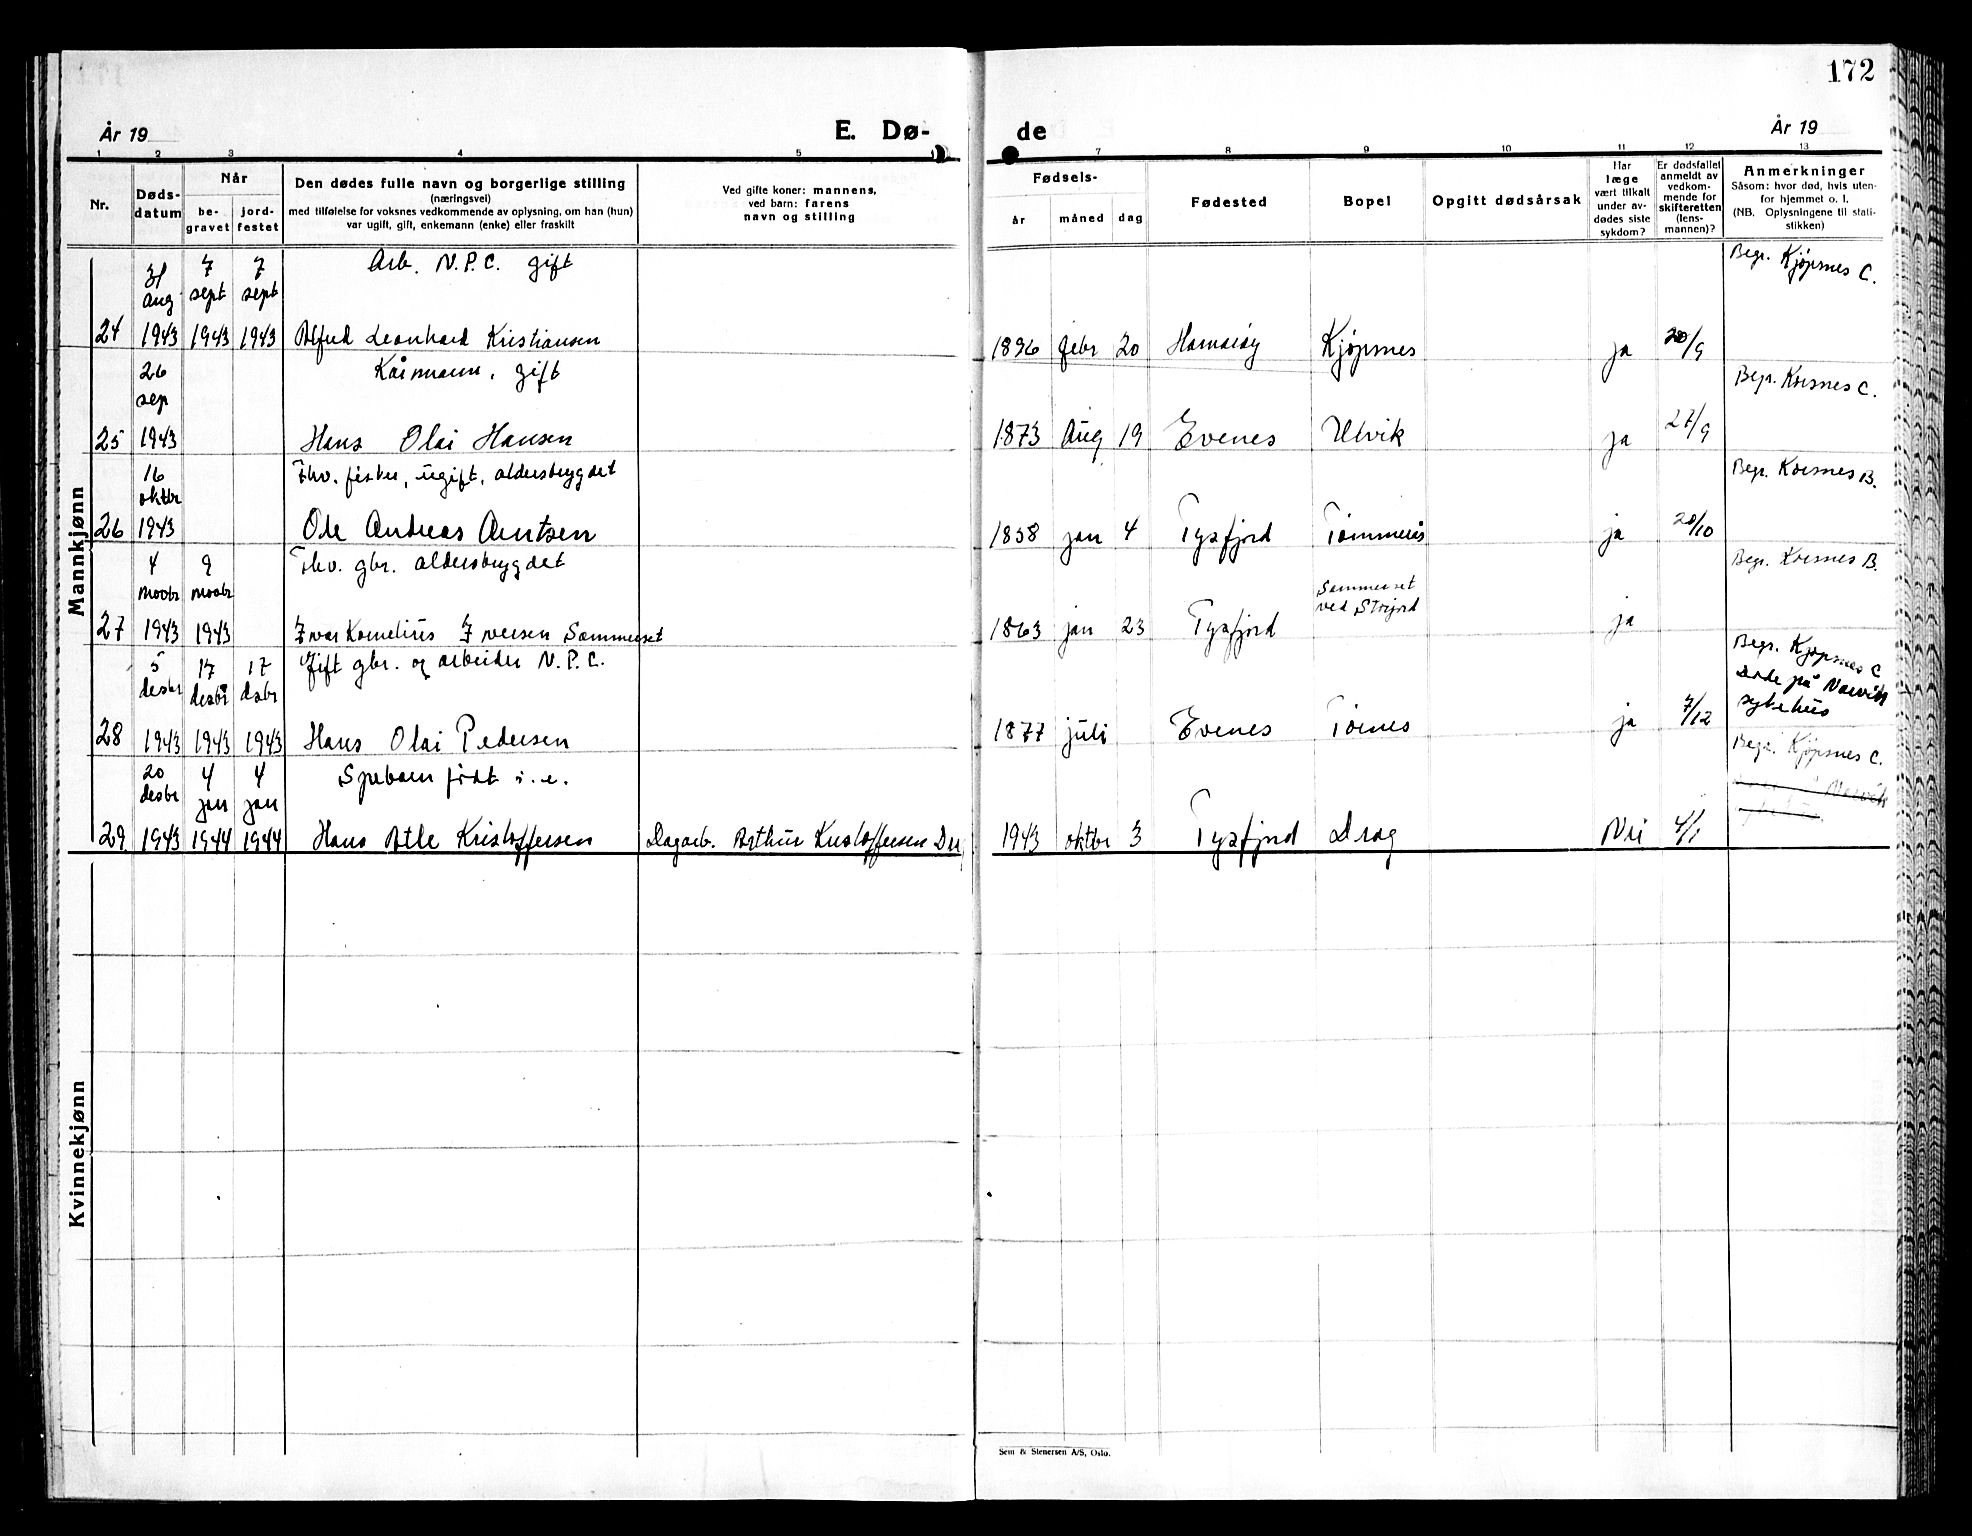 172
År 19
E. Dø-
de
År 19
1 2 3 4 5
7 8 9 10 11 12 13
Nr.
Døds-
datum
Når
be-
gravet
jord-
festet
Den dødes fulle navn og borgerlige stilling
(næringsvei)
med tilføielse for voksnes vedkommende av oplysning, om han (hun)
var ugift, gift, enkemann (enke) eller fraskilt
Ved gifte koner: mannens,
ved barn: farens
navn og stilling
Fødsels-
år
måned
dag
Fødested
Bopel
Opgitt dødsårsak
Har
læge
vært tilkalt
under av-
dødes siste
sykdom?
Er dødsfallet
anmeldt av
vedkom-
mende for
skifteretten
(lens-
mannen)?
Anmerkninger
Såsom: hvor død, hvis uten-
for hjemmet o. l.
(NB. Oplysningene til stati-
stikken)
Mannkjønn
31 7 7 Arb. N.P.C. gift Begr. Kjøpsnes C.
aug sept sept
24 1943 1943 1943 Alfred Leonhard Kristiansen 1896 febr 20 Hamarøy Kjøpsnes ja 20/9
26 Kårmann, gift Begr. Korsnes C.
sep
25 1943 Hans Olai Hansen 1873 Aug 19 Evenes Ulvik ja 27/9
16 Fhv. fisker, ugift, alderstrygdet Begr. Korsnes B.
oktbr
26 1943 Ole Andreas Arntsen 1858 jan 4 Tysfjord Tømmerås ja 20/10
4 9 Fhv. gbr. alderstrygdet Begr. Korsnes B.
novbr novbr Sommerset
ved Storjord
27 1943 1943 Ivar Kornelius Iversen Sommerset 1863 jan 23 Tysfjord ja
5 17 17 Gift gbr. og arbeider N.P.C. Begr. Kjøpsnes C
desbr desbr desbr Døde på Narvik
sykehus
28 1943 1943 1943 Hans Olai Pedersen 1877 juli Evenes Tørnes ja 7/12
20 4 4 Spebarn født i. e. Begr. Kjøpsnes C.
desbr jan jan Narvik
29 1943 1944 1944 Hans Atle Kristoffersen Dagarb. Arthur Kristoffersen 1943 oktbr 3 Tysfjord Drag Nei 4/1
Kvinnekjønn
Sem & Stenersen A/S, Oslo.